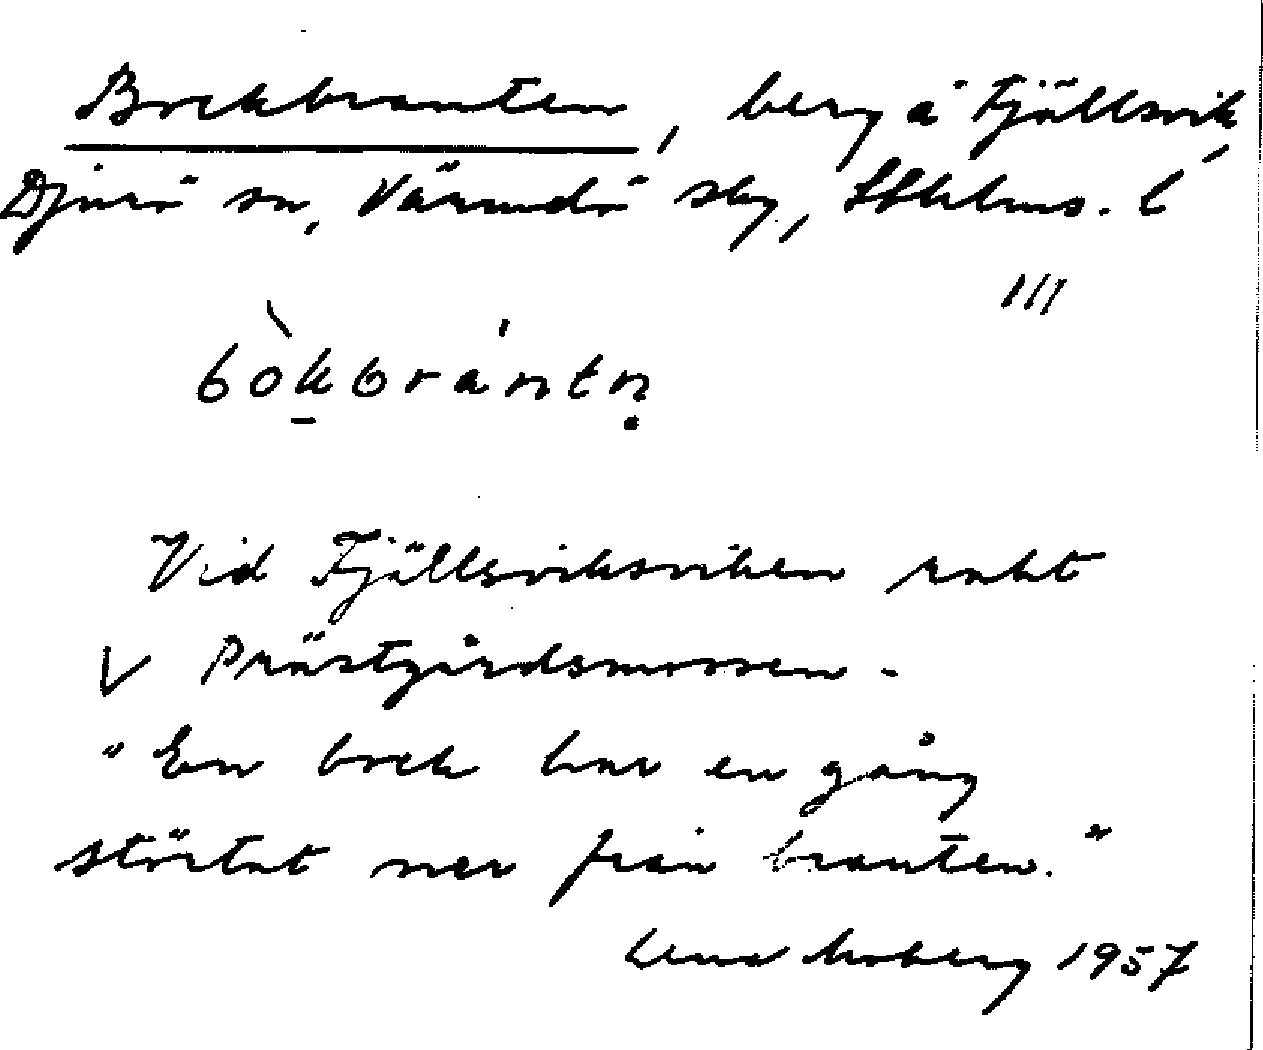 Bockbranten, berg å Fjällsvik,
Djurö sn, Värmdö skg, Sthlms. l
III
bòkbrántn̥
Vid Fjällsviksviken rakt
V Prästgårdsmossen -
"En bock har en gång
störtat ner från branten."
Lena Moberg 1957